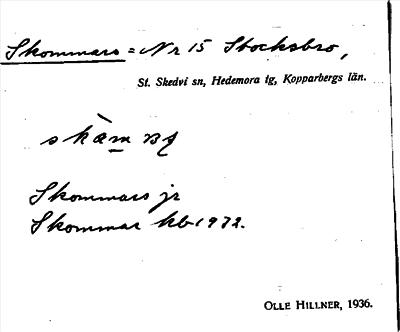 Skommars = Nr 15 Stocksbro,
St. Skedvi sn, Hedemora tg, Kopparbergs län.
Skommars jr
Skommar kb 1972.
OLLE HILLNER, 1936.